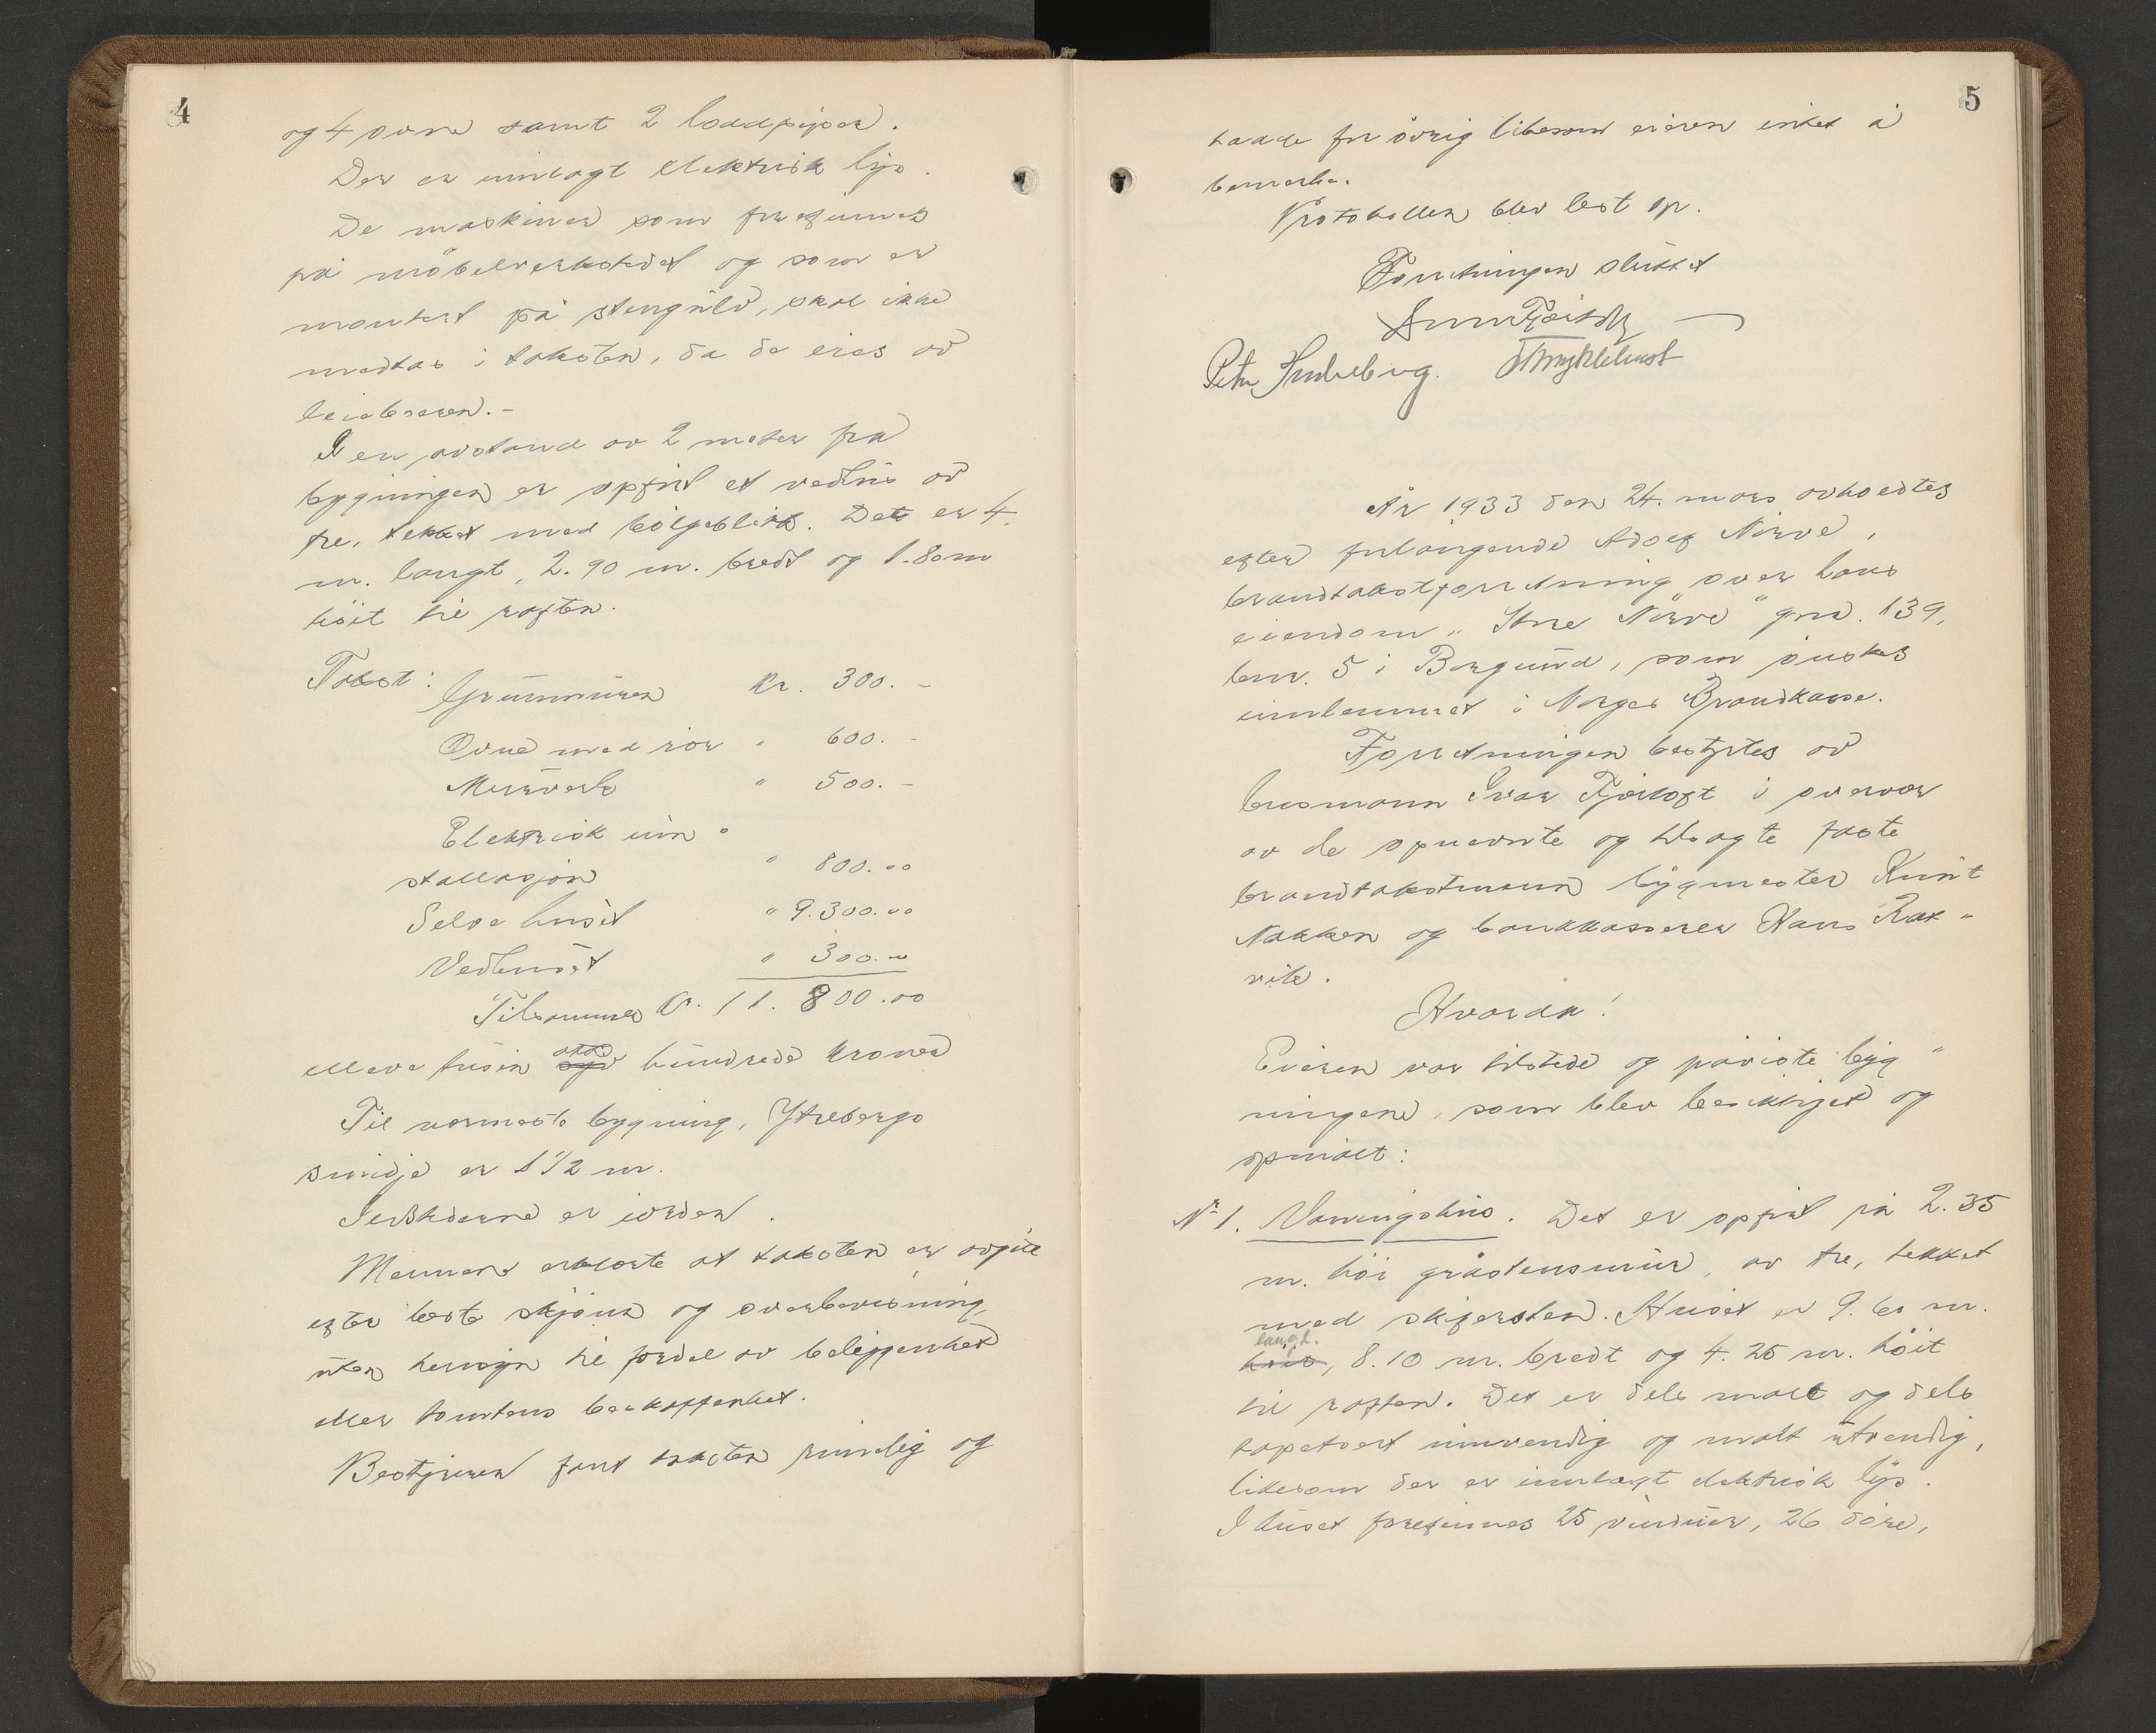 4
og 4 ovne samt 2 loddpiper.
Der er innlagt elektrisk lys.
De maskiner som forefinnes
på møbelverkstedet og som er
montert på stengulv, skal ikke
medtas i taksten, da de eies av
leieboeren.-
I en avstand av 2 meter fra
bygningen er opført et vedhus av
tre, tekket med bølgeblikk. Det er 4
m. langt, 2.90 m. bredt og 1.80 m
høit til raften.
Takst: Grunnmuren kr. 300.-
Ovne med rør " 600.-
Murverk " 500.-
Elektrisk inn-
stallasjon " 800.00
Selve huset " 9.300.00
Vedhuset " 300.00
Tilsammen kr. 11.800.00
elleve tusin åtte hundrede kroner
Til nærmeste bygning, Ytrebergs
smidje er 1 1/2 m.
Ildstederne er i orden.
Mennene erklærte at taksten er avgitt
efter beste skjønn og overbevisning,
uten hensyn til fordel av beliggenhet
eller tomtens beskaffenhet.
Bestyreren fant taksten rimelig og
5
hadde for øvrig likesom eieren intet å
bemerke.
Protokollen blev lest op.
Forretningen sluttet
Ivar Fjørtoft
Petter Myklebust
År 1933 den 24. mars avholdtes
efter forlangende Adolf Nørve,
brandtakstforretning over hans
eiendom "Stre Nørve" gnr. 139,
bnr. 5 i Borgund, som ønskes
innlemmet i Norges Brandkasse.
Forretningen bestyrtes av
lensmann Ivar Fjørtoft i overvær
av de opnevnte og tilsagte faste
brandtakstmenn bygmester Knut
Nakken og bankkasserer Hans Rat-
vik.
Hvorda!
Eieren var tilstede og påviste byg-
ningene, som blev besiktiget og
opmålt:
No 1. Våningshus. Det er opført på 2.35
m. høi gråstensmur, av tre, tekket
med skifersten. Huset er 9.60 m.
langt.
høit, 8.10 m. bredt og 4.25 m. høit
til raften. Det er dels malt og dels
tapetsert innvendig og malt utvendig,
likesom der er innlagt elektrisk lys.
I huset forefinnes 25 vinduer, 26 døre,